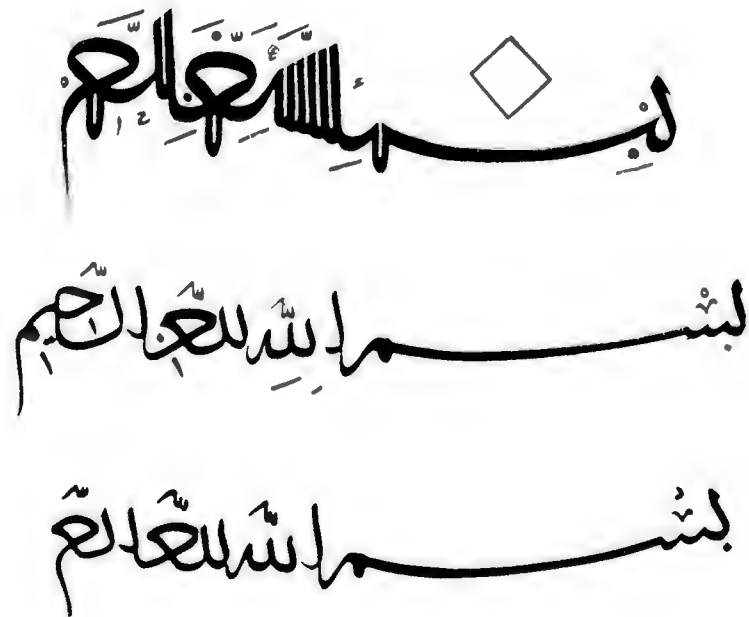 بسم الله الرحمن الرحيم
بسم الله الرحمن الرحيم
بسم الله الرحمن الرحيم